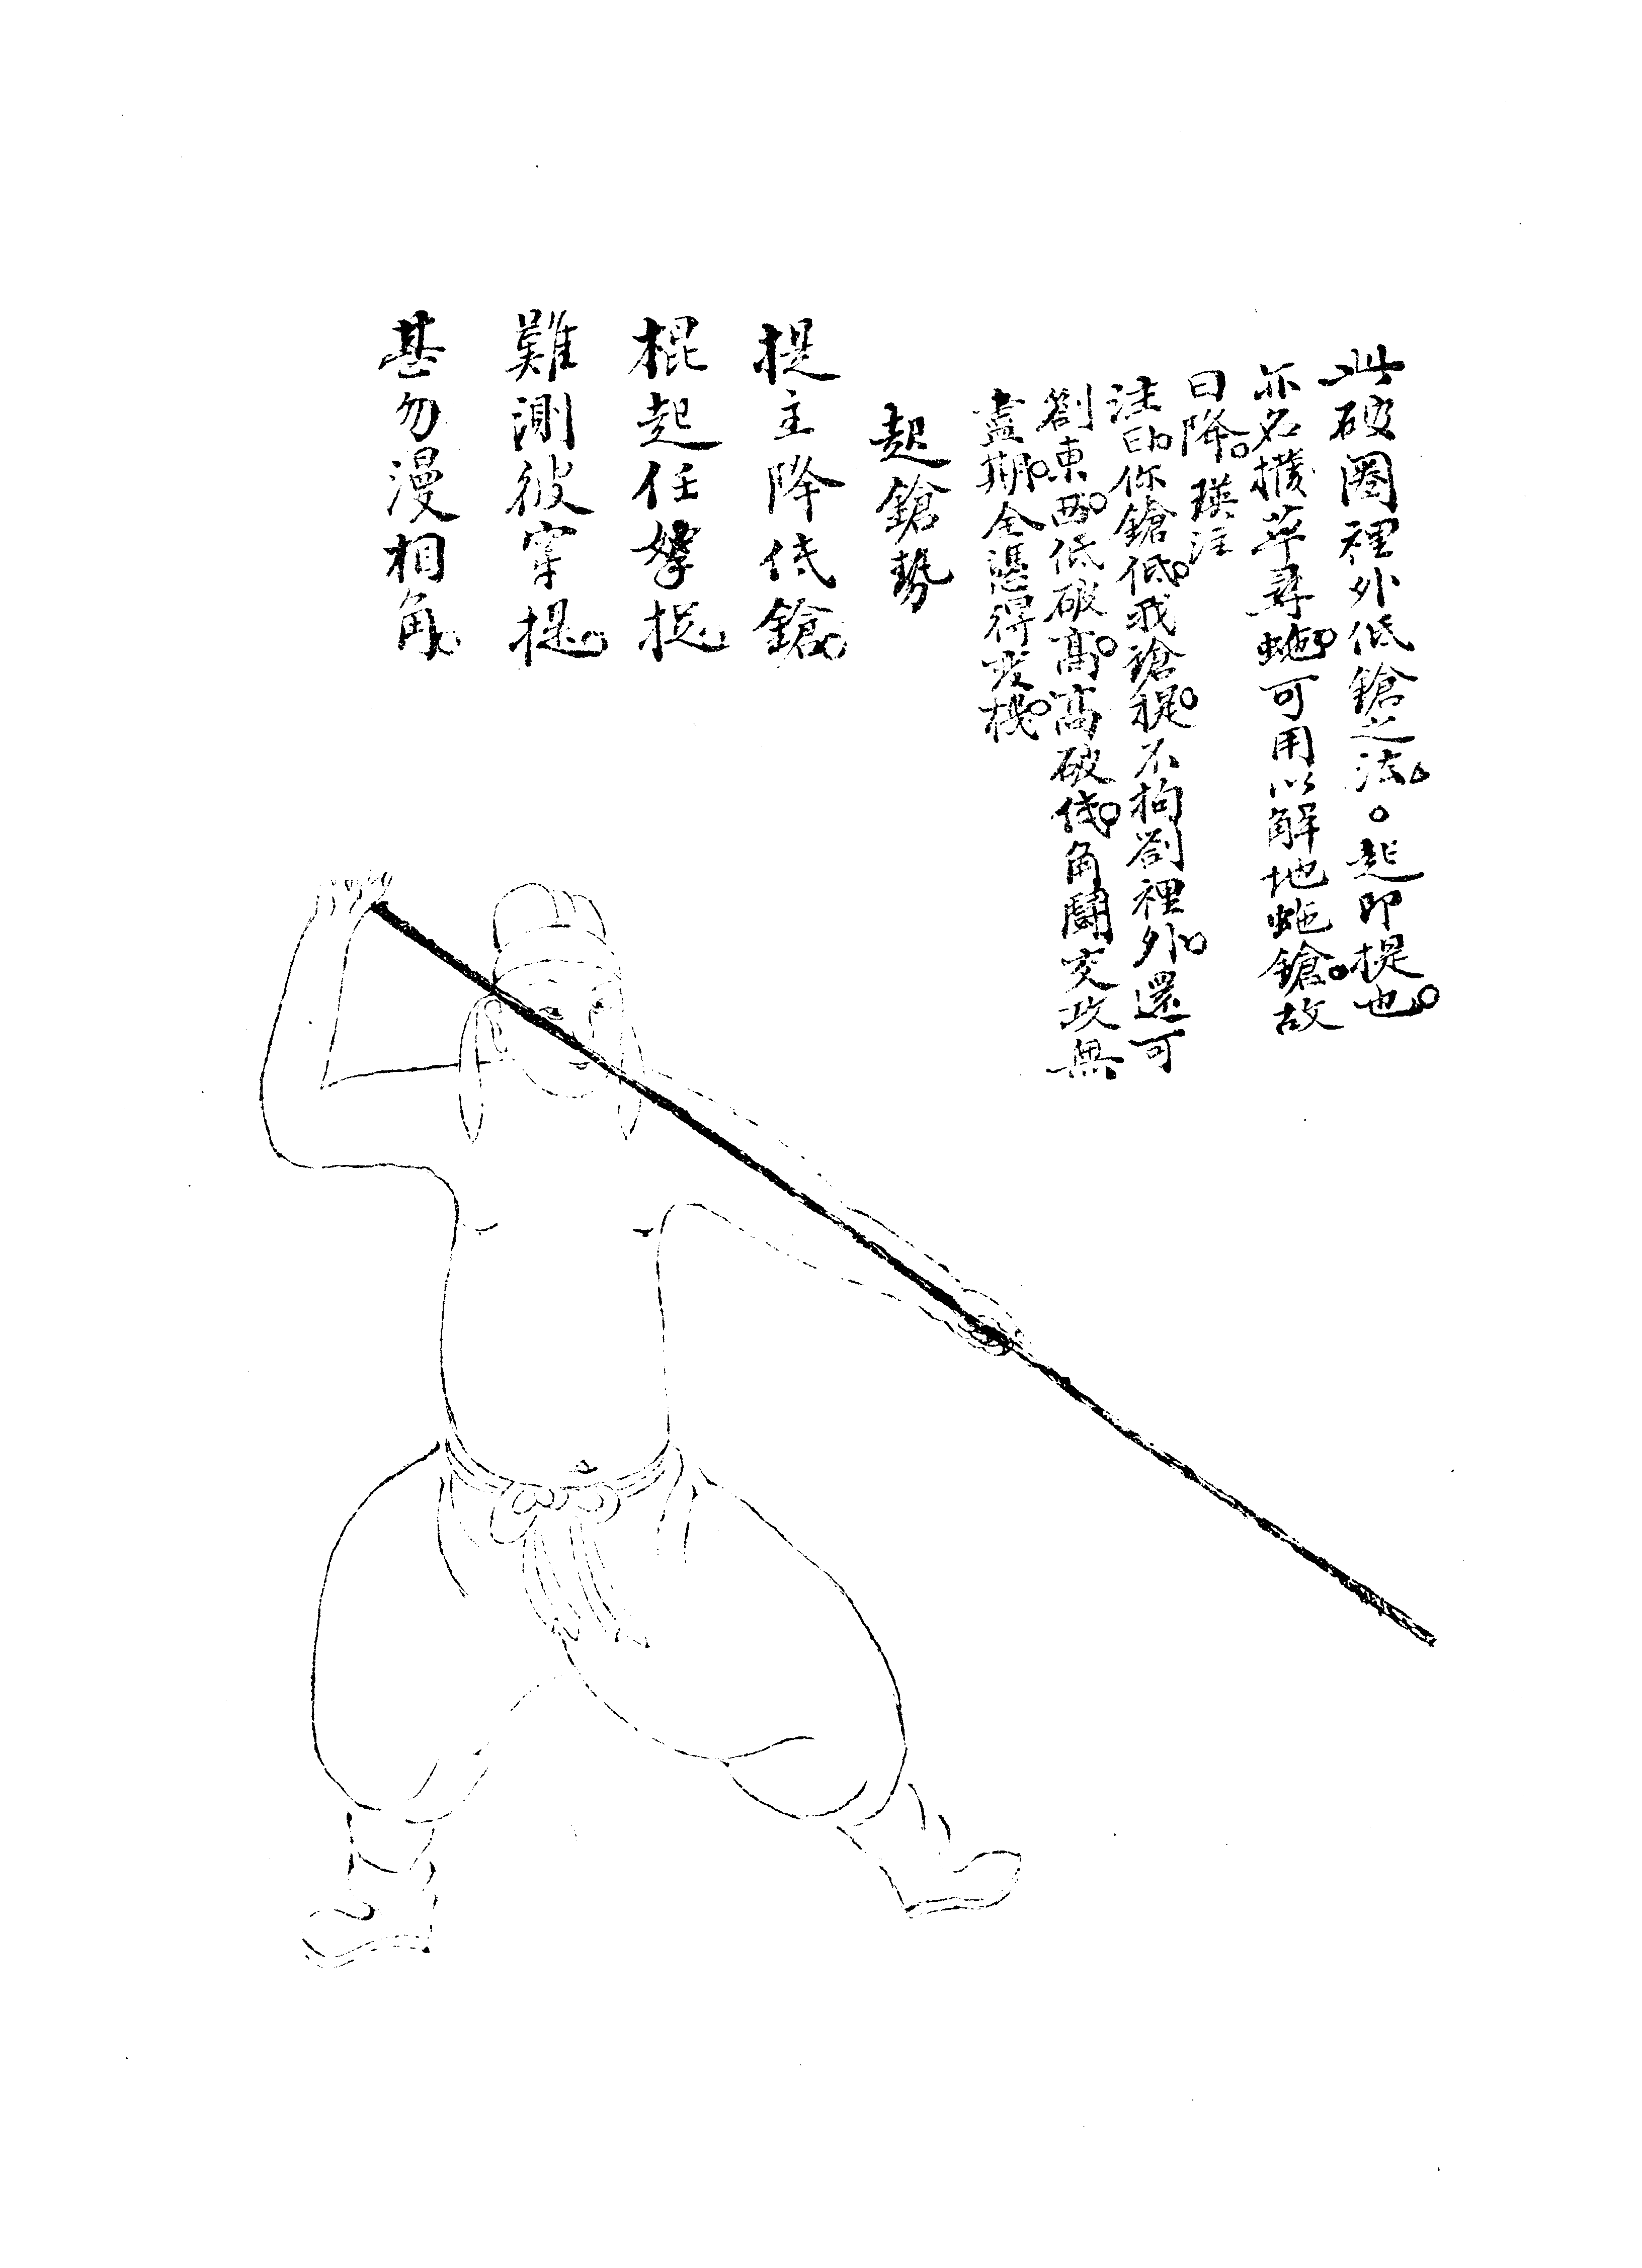 此破圈裡外低鎗之法。起即提也。
亦名撥草尋蛇。可用以解地蛇鎗。故
曰降。瑛注
注曰。你鎗低。我鎗提。不拘劄裡外。還可
劄東西。低破高。高破低。角鬪交攻無
盡期。全憑得發機。
起鎗勢
提主降低鎗。
棍起任拏捉。
難測彼穿提。
甚勿漫相角。